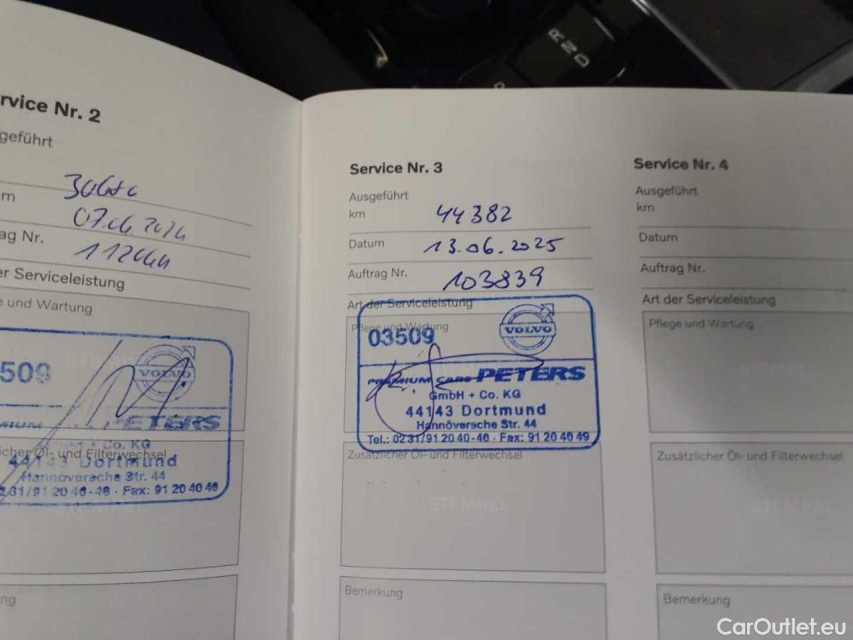 R
N
D
rvice Nr. 2
geführt
m
07.06.2024
ag Nr.
er Serviceleistung
e und Wartung
509
VOLVO
PETERS
+ Co. KG
icher Öl- und Filterwechsel
44143 Dortmund
Hannöversche Str. 44
231/91 20 40-40 · Fax: 91 20 40 49
ng
Service Nr. 3
Ausgeführt
km 44382
Datum 13.06.2025
Auftrag Nr. 103839
Art der Serviceleistung
Pflege und Wartung
03509
VOLVO
PREMIUM CARS PETERS
GmbH + Co. KG
44143 Dortmund
Hannöversche Str. 44
Tel.: 02 31/91 20 40-40 · Fax: 91 20 40 49
Zusätzlicher Öl- und Filterwechsel
STEMPEL
Bemerkung
Service Nr. 4
Ausgeführt
km
Datum
Auftrag Nr.
Art der Serviceleistung
Pflege und Wartung
Zusätzlicher Öl- und Filterwechsel
Bemerkung
CarOutlet.eu